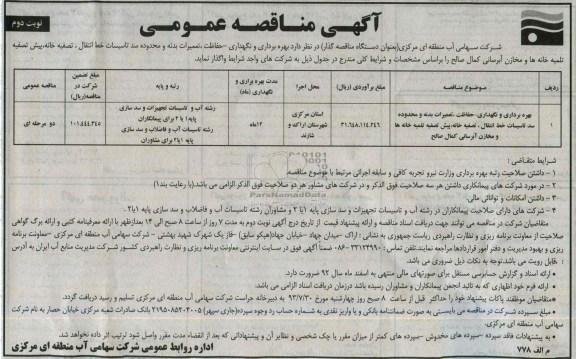 آگهی مناقصه عمومی
نوبت دوم
شرکت سهامی آب منطقه ای مرکزی(بعنوان دستگاه مناقصه گذار) در نظر دارد بهره برداری و نگهداری -حفاظت ،تعمیرات بدنه و محدوده سد تاسیسات خط انتقال ، تصفیه خانه،پیش تصفیه
تلمبه خانه ها و مخازن آبرسانی کمال صالح را براساس مشخصات و شرایط کلی مندرج در جدول ذیل به شرکت های واجد شرایط واگذار نماید.
ردیف
موضوع مناقصه
مبلغ برآوردی (ریال)
محل اجرا
مدت بهره برداری و نگهداری (ماه)
رتبه و پایه
مبلغ تضمین شرکت در مناقصه(ریال)
مناقصه عمومی
۱
بهره برداری و نگهداری -حفاظت ،تعمیرات بدنه و محدوده
سد تاسیسات خط انتقال ، تصفیه خانه،پیش تصفیه تلمبه خانه ها
و مخازن آبرسانی کمال صالح
۳۱،۶۴۸،۱۱۴،۲۴۶
استان مرکزی
شهرستان اراک و
شازند
۱۲ماه
رشته آب و تاسیسات تجهیزات و سد سازی
پایه۱ یا ۲ برای پیمانکاران
رشته تاسیسات آب و فاضلاب و سد سازی
پایه ۱یا ۲برای مشاوران
دو مرحله ای
شرایط متقاضی :
۱ – داشتن صلاحیت رتبه بهره برداری وزارت نیرو تجربه کافی و سابقه اجرائی مرتبط با موضوع مناقصه.
۲ – در مورد شرکت های پیمانکاری داشتن هر سه صلاحیت فوق الذکر و در شرکت های مشاور هر دو صلاحیت فوق الذکر الزامی می باشد.(با رعایت بند۱)
۳ – داشتن امکانات و توانائی مالی.
۴ – شرکت های دارای صلاحیت پیمانکاران در رشته آب و تاسیسات تجهیزات و سد سازی پایه ۱یا ۲ و مشاوران رشته تاسیسات آب و فاضلاب و سد سازی پایه ۱یا۲.
متقاضیان شرکت در مناقصه می توانند جهت دریافت اسناد مناقصه و ارائه پیشنهاد قیمت از تاریخ درج آگهی نوبت دوم به مدت ۷ روز از ساعت ۸ صبح الی ۱۴ بعدازظهر با ارائه معرفینامه کتبی و ارائه برگ گواهی
صلاحیت از معاونت برنامه ریزی و نظارت راهبردی ریاست جمهوری به نشانی : اراک -میدان جهاد -خیابان جهاد(هپکو سابق) -فاز یک شهرک شهید بهشتی - شرکت سهامی آب منطقه ای مرکزی -معاونت برنامه
ریزی و بهبود مدیریت و دفتر امور قراردادها مراجعه نمایند.تلفن تماس : ۳۳۱۲۴۹۹۰-۰۸۶ ضمنا آگهی فوق در سایت اینترنتی معاونت برنامه ریزی و نظارت راهبردی کشور شرکت مدیریت منابع آب ایران به آدرس
قابل رویت می باشد،توجه به نکات ذیل ضروری می باشد.
* ارائه اسناد و گزارش حسابرسی مستقل برای صورتهای مالی منتهی به اسفند ماه سال ۹۲ ضرورت دارد.
* ارائه فرم خود اظهاری که به تائید انجمن پیمانکاران و مشاوران رسیده باشد درزمان دریافت اسناد الزامی می باشد.
*متقاضیان موظفند پاکات پیشنهاد خود را حداکثر قبل از ساعت ۸ صبح روز چهارشنبه مورخ ۹۳/۷/۳۰ به دبیرخانه حراست شرکت سهامی آب منطقه ای مرکزی تسلیم و رسید دریافت گردد.
* مبلغ سپرده شرکت در مناقصه می بایستی به صورت ضمانتنامه بانکی و یا واریز نقدی به شماره حساب رد وجوه سپرده(جاری سپهر) بانک صادرات شعبه مرکزی خیابان حصار به نام شرکت
سهامی آب منطقه ای مرکزی.
* به پیشنهادات فاقد سپرده -سپرده های مخدوش -سپرده های کمتر از میزان مقرر یا چک شخصی و نظایر آن و پیشنهاداتی که بعد از انقضاء مدت مقرر واصل شود ترتیب اثر داده نخواهد شد.
م الف ۷۷۸
اداره روابط عمومی شرکت سهامی آب منطقه ای مرکزی